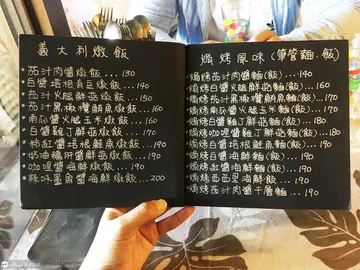 義大利燉飯
茄汁肉醬燉飯...130
白醬培根青豆燉飯...140
茄汁火腿鮮菇燉飯...150
茄汁黑椒嫩雞燉飯...170
南瓜醬火腿玉米燉飯...160
白醬雞丁鮮菇燉飯...170
粉紅醬培根鮭魚燉飯...190
奶油鮭魚鮮菇燉飯...190
咖哩醬海鮮燉飯...190
辣味墨魚醬海鮮燉飯...200
焗烤風味(筆管麵.飯)
焗烤茄汁肉醬麵(飯)...140
焗烤白醬火腿鮮菇麵(飯)...160
焗烤茄汁黑椒麵(飯)...170
焗烤白醬火腿玉米麵(飯)...170
焗烤咖哩雞丁鮮菇麵(飯)...180
焗烤白醬雞丁鮮菇麵(飯)...180
焗烤白醬培根鮭魚麵(飯)...190
焗烤白醬海鮮麵(飯)...190
焗烤紅醬海鮮麵(飯)...190
焗烤茄汁肉醬千層麵...190